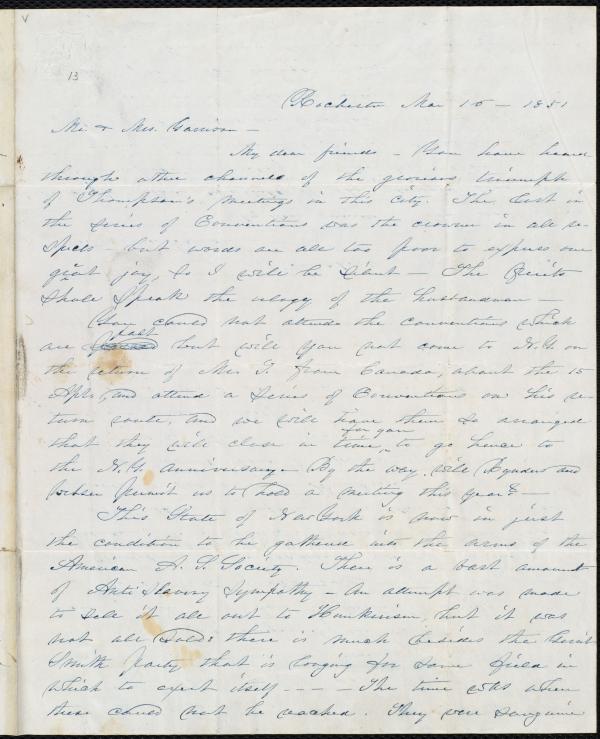 13
Rochester Mar 16 – 1851
Mr & Mrs. Garrison –
My dear friends – You have heard
through other channels of the glorious triumph
of Thompson's meetings in this city. The last in
the series of Conventions was the crown in all re-
spects – but words are all too poor to express our
great joy, so I will be silent – The fruits
shall speak the ulogy of the husbandman –
You could not attend the conventions which
are past but will you not come to N.Y. on
the return of Mr. T. from Canada, about the 15
Apr. and attend a series of Conventions on his re-
turn route, and we will have them so arranged
for you
that they will close in time to go hence to
the N.Y. anniversary – By the way, will Rynders and
Webster permit us to hold a meeting this year? –
This State of New York is now in just
the condition to be gathered into the arms of the
American A. S. Society. There is a vast amount
of Anti Slavery Sympathy – An attempt was made
to sell it all out to Hunkerism, but it was
not all sold: there is much besides the Gerrit
Smith party that is longing for some field in
which to exert itself - - - – The time was when
these could not be reached. They were sanguine